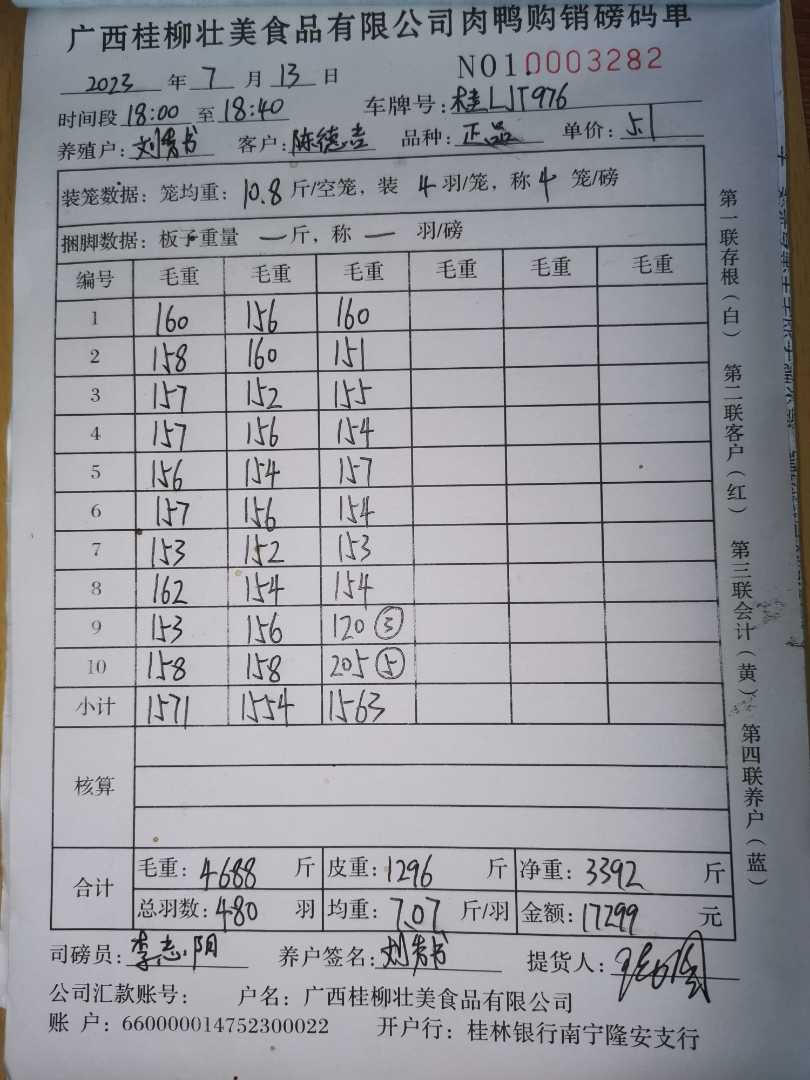 广西桂柳壮美食品有限公司肉鸭购销磅码单
2023 年 7 月 13 日 NO10003282
时间段 18:00 至 18:40 车牌号: 桂LJT976
养殖户: 刘秀书 客户: 陈德志 品种: 正品 单价: 5.1
装笼数据: 笼均重: 10.8 斤/空笼, 装 4 羽/笼, 称 4 笼/磅
捆脚数据: 板子重量 一 斤, 称 一 羽/磅
编号 毛重 毛重 毛重 毛重 毛重 毛重
1 160 156 160
2 158 160 151
3 157 152 155
4 157 156 154
5 156 154 157
6 157 156 154
7 153 152 153
8 162 154 154
9 153 156 120 ③
10 158 158 205 ⑤
小计 1571 1554 1563
核算
合计
毛重: 4688 斤 皮重: 1296 斤 净重: 3392 斤
总羽数: 480 羽 均重: 7.07 斤/羽 金额: 17299 元
司磅员: 李志阳 养户签名: 刘秀书 提货人:
公司汇款账号: 户名: 广西桂柳壮美食品有限公司
账 户: 660000014752300022 开户行: 桂林银行南宁隆安支行
第一联存根(白) 第二联客户(红) 第三联会计(黄) 第四联养户(蓝)